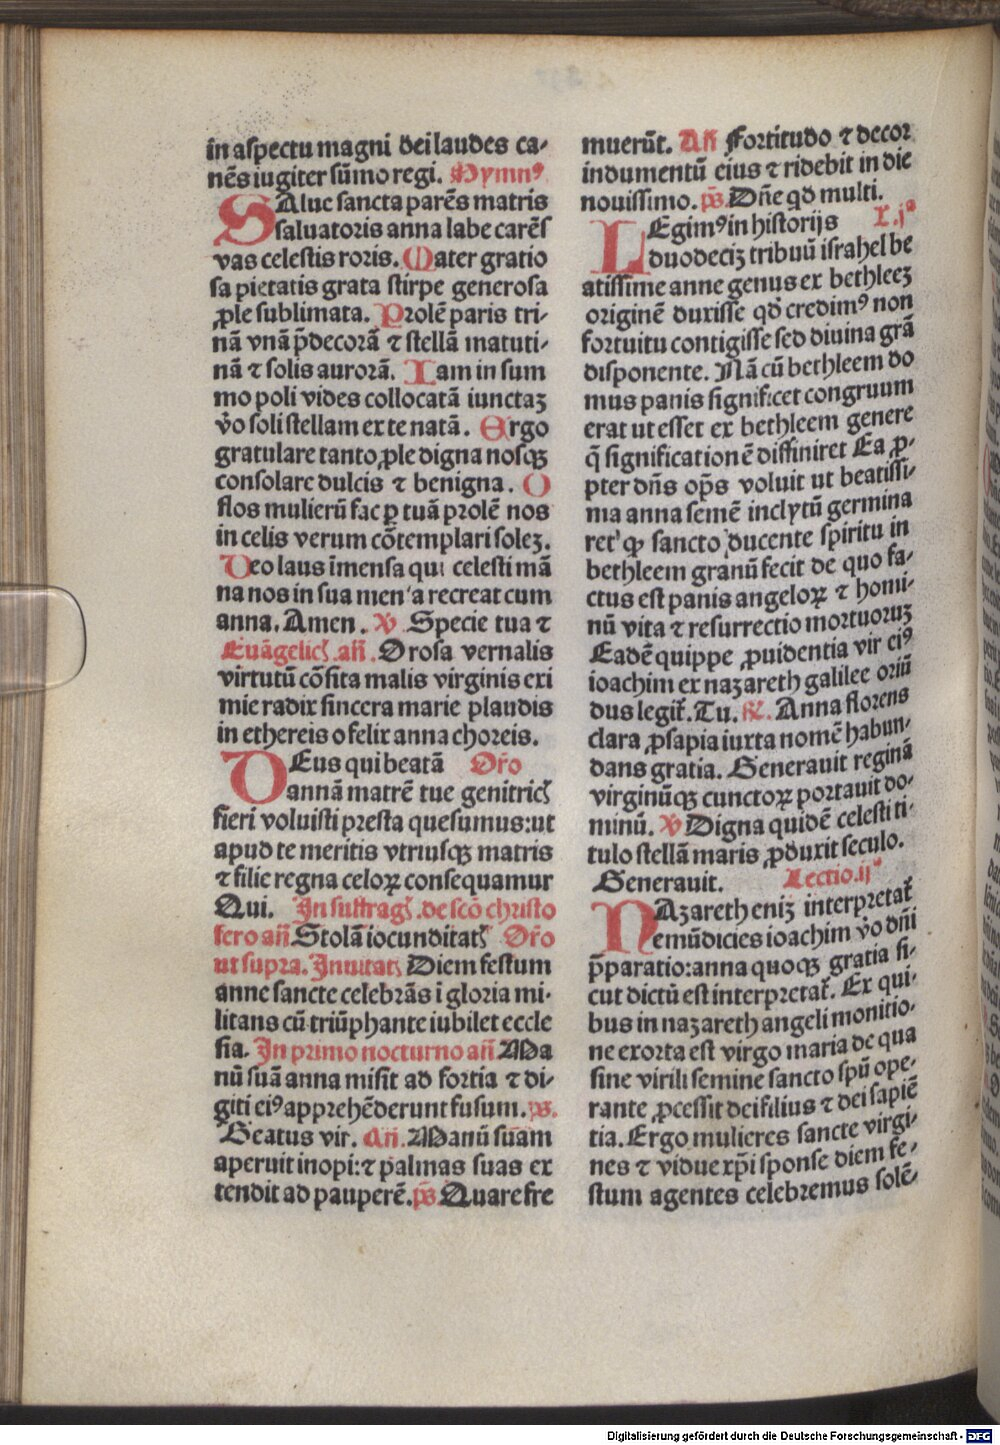 in aspectu magni dei laudes ca-
nēs iugiter sūmo regi. Hymnꝰ
SAlue sancta parēs matris
saluatoris anna labe carēs
vas celestis roris. Mater gratio
sa pietatis grata stirpe generosa
ꝓle sublimata. Prolē paris tri-
nā vnā p̄decorā ⁊ stellā matuti-
nā ⁊ solis aurorā. Iam in sum
mo poli vides collocatā iunctaꝫ
v̄o soli stellam ex te natā. Ergo
gratulare tanto ꝓle digna nosqꝫ
consolare dulcis ⁊ benigna. O
flos mulierū fac ꝑ tuā prolē nos
in celis verum cōtemplari soleꝫ.
Deo laus īmensa qui celesti mā
na nos in sua mensa recreat cum
anna. Amen. V̄ Specie tua ⁊
Euāgelicꝭ. an̄. O rosa vernalis
virtutū cōsita malis virginis exi
mie radix sincera marie plaudis
in ethereis o felix anna choreis.
DEus qui beatā Or̄o
annā matrē tue genitricꝭ
fieri voluisti presta quesumus: ut
apud te meritis vtriusqꝫ matris
⁊ filie regna celoꝝ consequamur
Qui. In suffragꝭ. de sc̄o christo
fero an̄ Stolā iocunditatꝭ Or̄o
ut supra. Inuitatꝭ Diem festum
anne sancte celebrās ī gloria mi-
litans cū triūphante iubilet eccle
sia. In primo nocturno an̄ Ma
nū suā anna misit ad fortia ⁊ di-
giti eiꝰ apprehēderunt fusum. ps.
Beatus vir. An̄. Manū suam
aperuit inopi: ⁊ palmas suas ex
tendit ad pauperē. ps̄ Quare fre
muerūt. An̄ Fortitudo ⁊ decor
indumentū eius ⁊ ridebit in die
nouissimo. ps̄ Dn̄e qd multi.
LEgimꝰ in historijs L. jᵃ
duodeciꝫ tribuū israhel be
atissime anne genus ex bethleeꝫ
originē duxisse qd̄ credimꝰ non
fortuitu contigisse sed diuina grā
disponente. Nā cū bethleem do
mus panis significet congruum
erat ut esset ex bethleem genere
q̄ significationē diffiniret Ea ꝓ-
pter dn̄s op̄s voluit ut beatissi-
ma anna semē inclytū germina
ret ꝙ sancto ducente spiritu in
bethleem granū fecit de quo fa-
ctus est panis angeloꝝ ⁊ homi-
nū vita ⁊ resurrectio mortuoruꝫ
Eadē quippe ꝓuidentia vir eiꝰ
ioachim ex nazareth galilee oriū
dus legit̄. Tu. ℟. Anna florens
clara ꝓsapia iuxta nomē habun-
dans gratia. Generauit reginā
virginūqꝫ cunctoꝝ portauit do-
minū. V̄ Digna quidē celesti ti-
tulo stellā maris ꝓduxit seculo.
Generauit. Lectio. ijᵃ
NAzareth eniꝫ interpretat̄
emūdicies ioachim v̄o dn̄i
p̄paratio: anna quoqꝫ gratia si-
cut dictū est interpretat̄. Ex qui-
bus in nazareth angeli monitio-
ne exorta est virgo maria de qua
sine virili semine sancto sp̄u ope-
rante ꝓcessit dei filius ⁊ dei sapiē
tia. Ergo mulieres sancte virgi-
nes ⁊ vidue xp̄i sponse diem fe-
stum agentes celebremus solē-
Digitalisierung gefördert durch die Deutsche Forschungsgemeinschaft - DFG